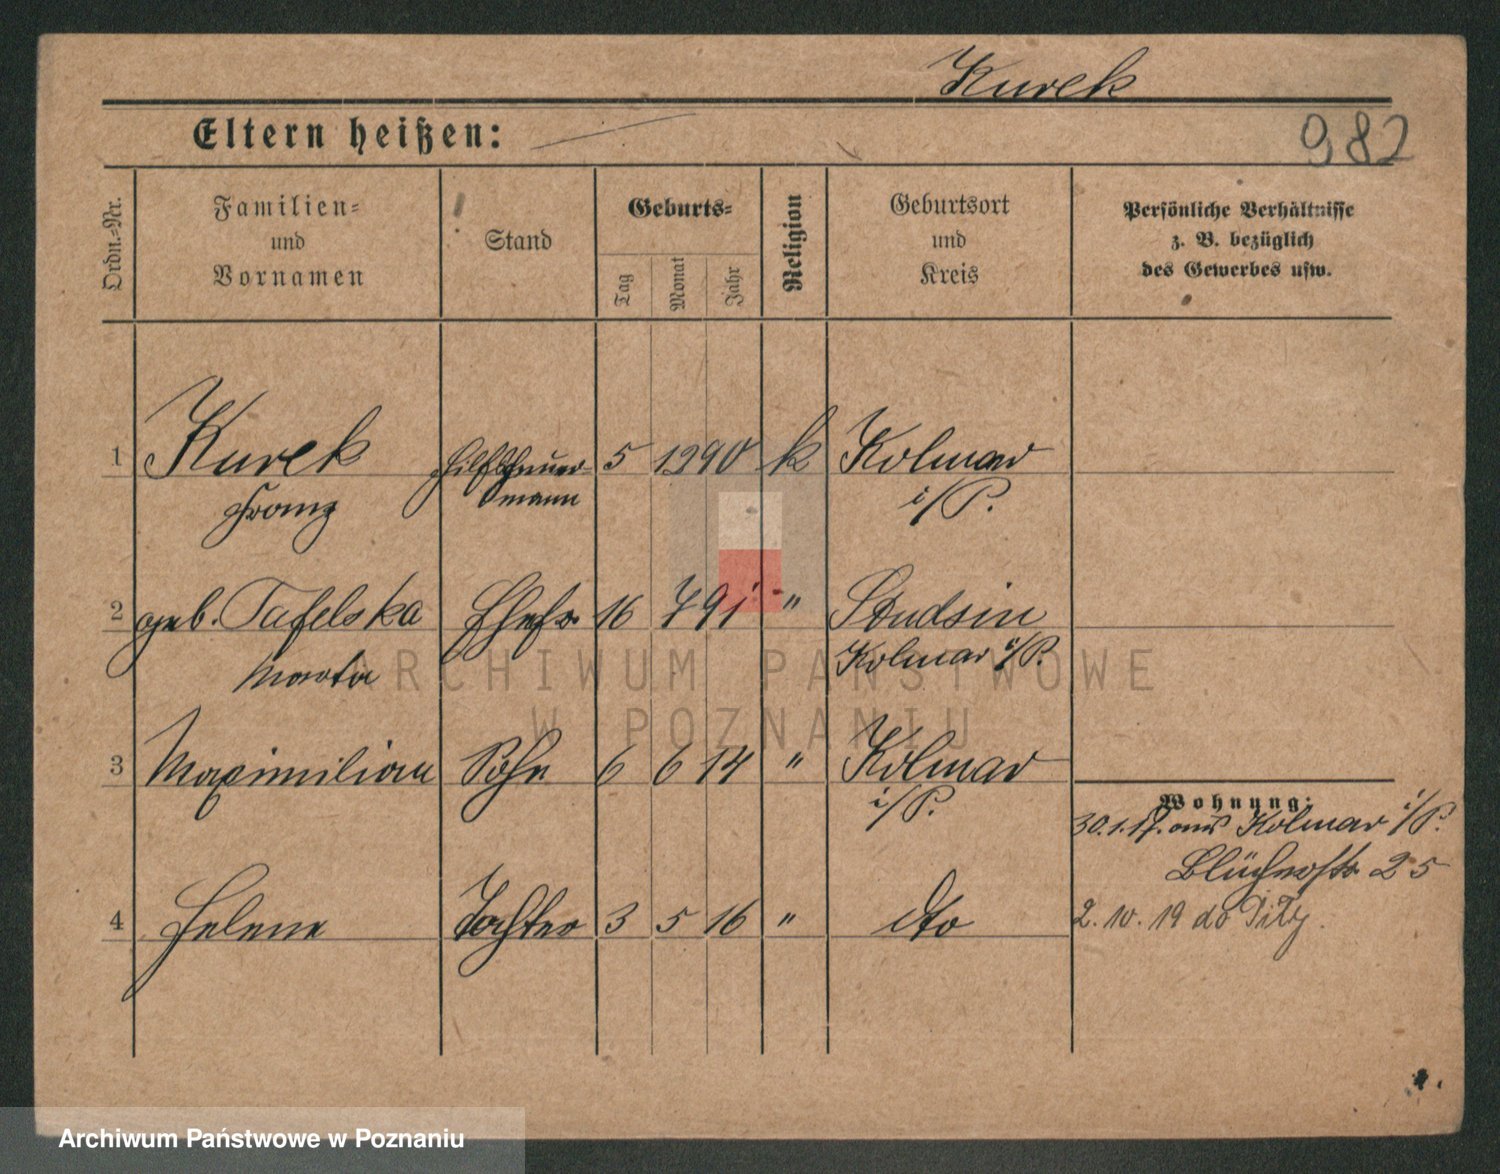 Kurek
Eltern heißen:
982
Ordn.-Nr.
Familien-
und
Vornamen
Stand
Geburts-
Tag
Monat
Jahr
Religion
Geburtsort
und
Kreis
Persönliche Verhältnisse
z. B. bezüglich
des Gewerbes usw.
1 Kurek Hilfsheizer- 5 12 90 k Kolmar
Franz mann i/P.
2 geb. Tafelska Ehefr. 16 7 91 " Studsin
Marta Kolmar i/P.
3 Maximilian Sohn 6 6 14 " Kolmar
i/P.
Wohnung:
30.1.17. aus Kolmar i/P.
Blücherstr 25
4 Helene Tochter 3 5 16 " dto
2. 10. 19 do Piły.
ARCHIWUM PAŃSTWOWE
W POZNANIU
Archiwum Państwowe w Poznaniu